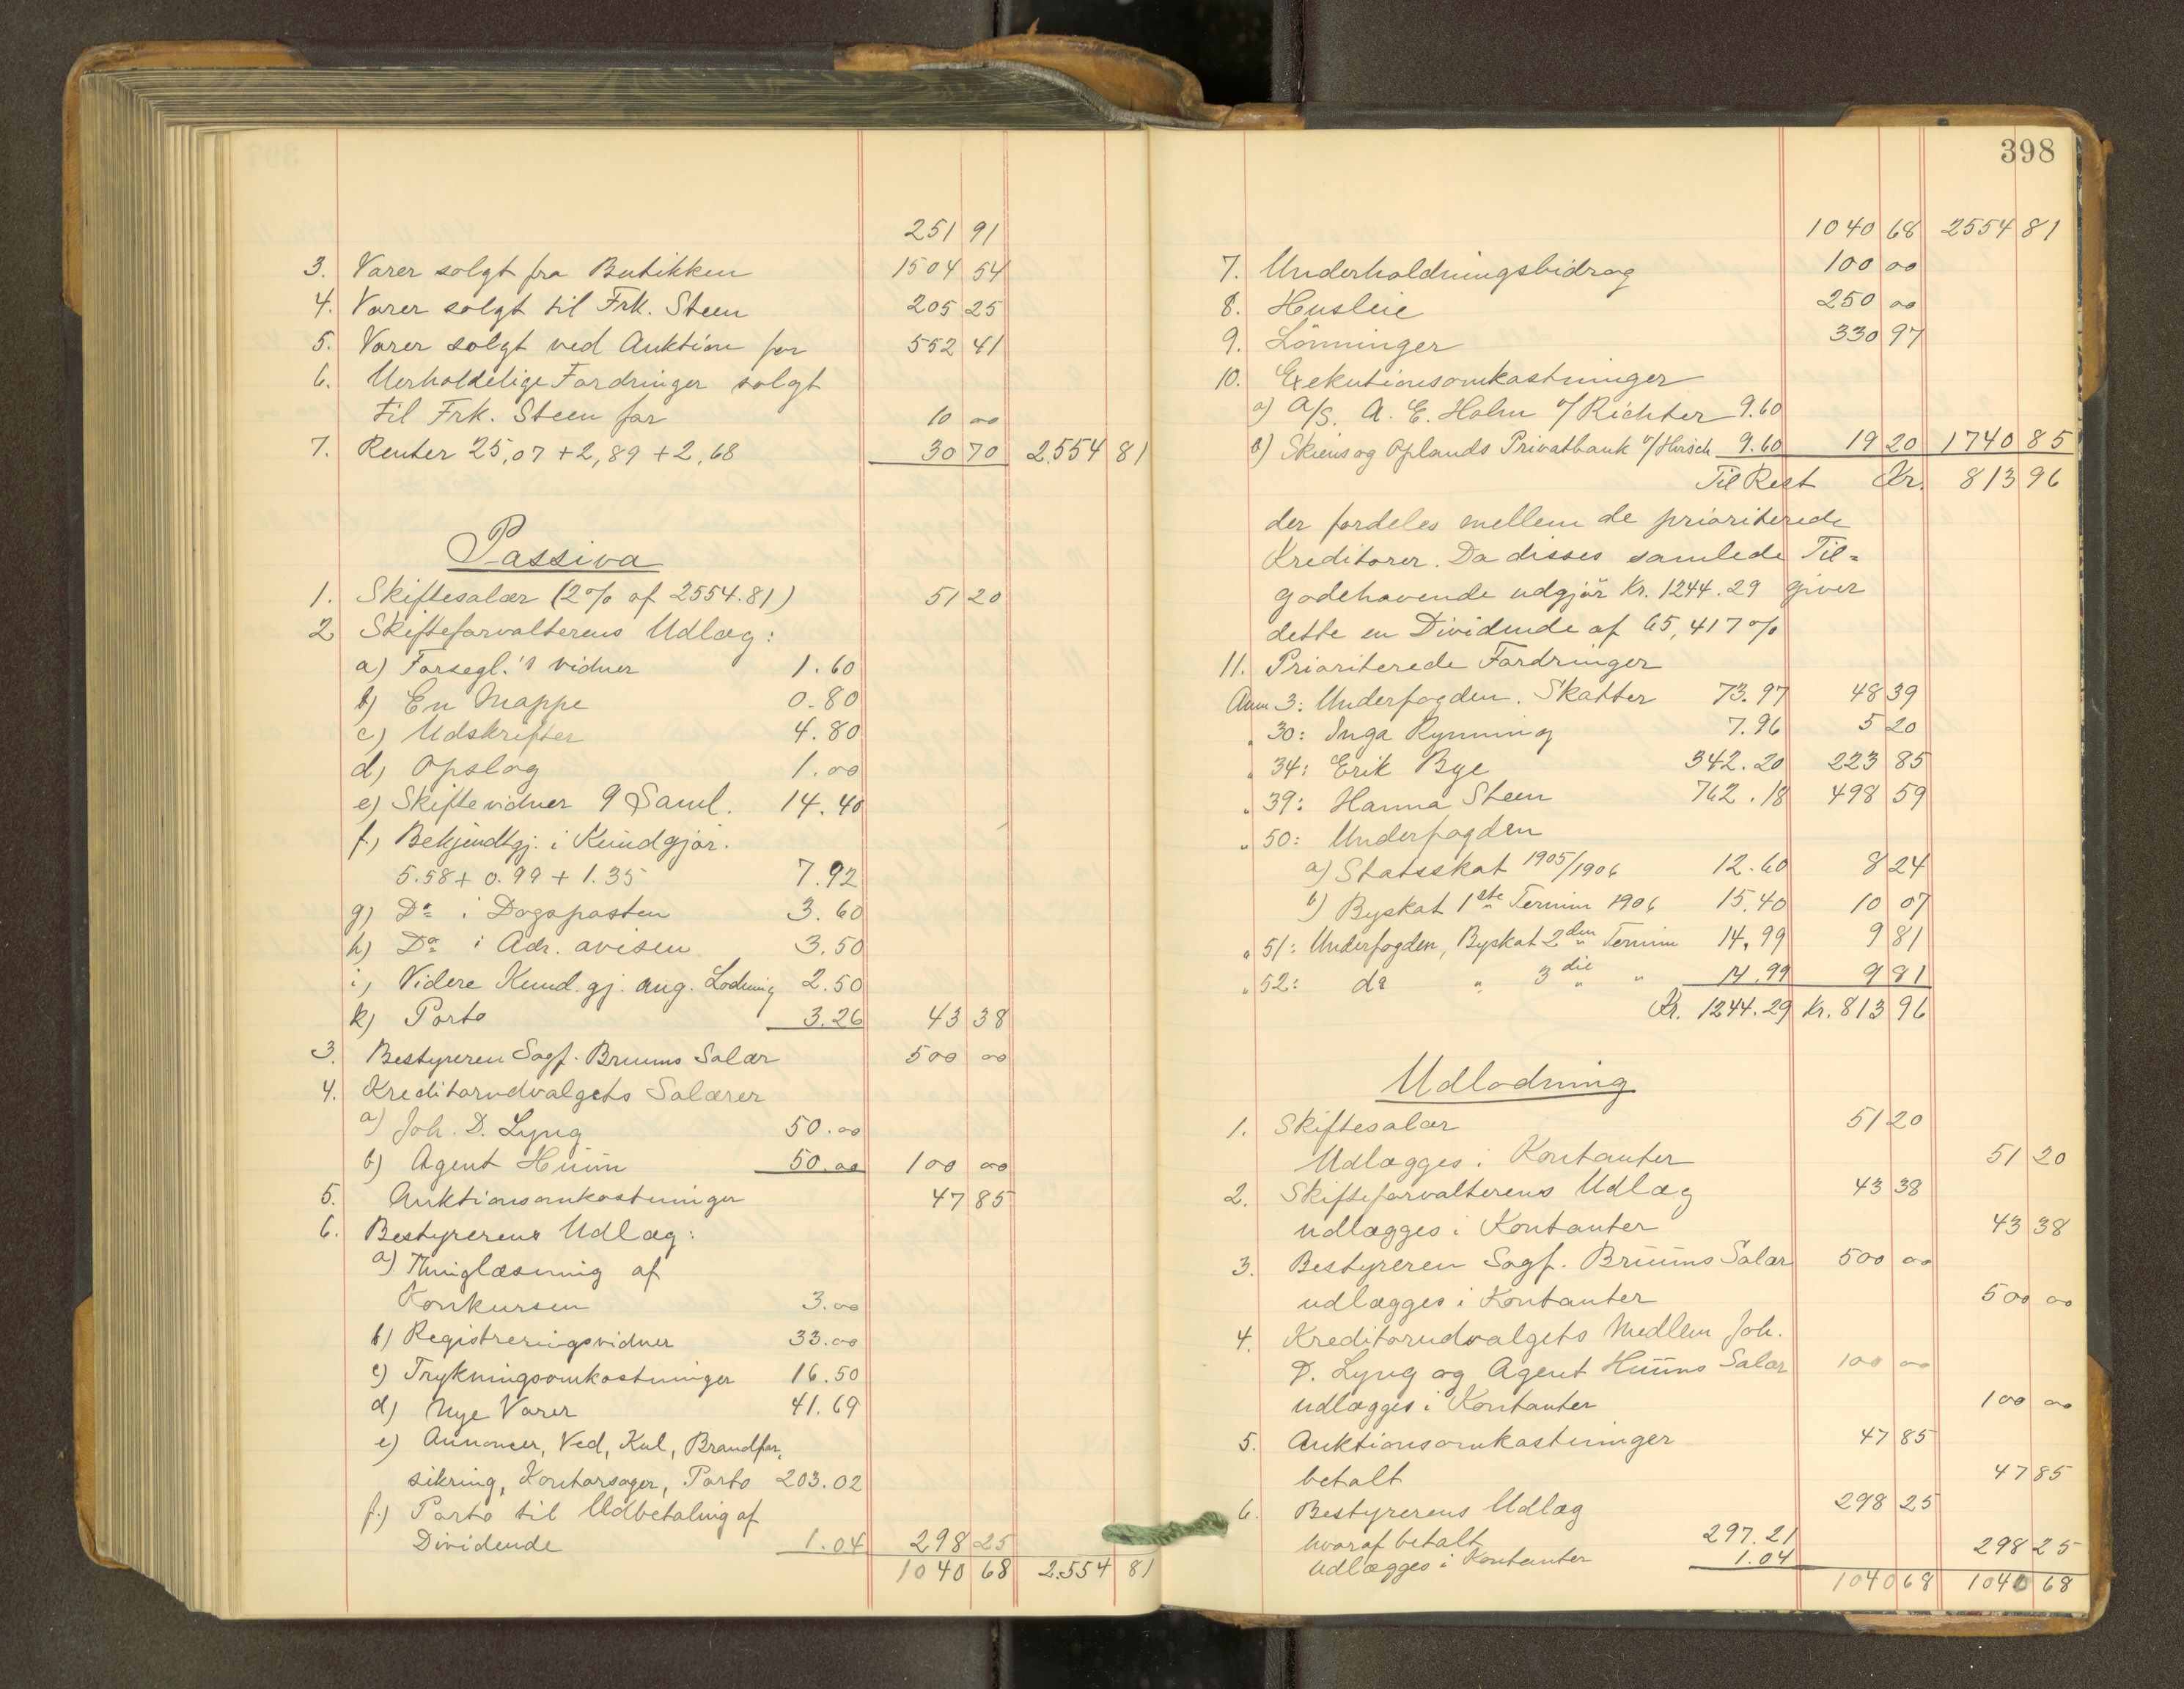 251 91
3. Varer solgt fra Butikken 1504 54
4. Varer solgt til Frk. Steen 205 25
5. Varer solgt ved Auktion for 552 41
6. Uerholdelige Fordringer solgt
til Frk. Steen for 10 00
7. Renter 25,07 + 2,89 + 2,68 30 70 2554 81
Passiva
1. Skiftesalær (2% af 2554.81) 51 20
2 Skifteforvalterens Udlæg:
a) Forsegl.'s vidner 1.60
b) En Mappe 0.80
c) Udskrifter 4.80
d) Opslag 1.00
e) Skiftevidner 9 Saml. 14.40
f) Bekjendtgj. i Kundgjør.
5.58 + 0.99 + 1.35 7.92
g) Do i Dagsposten 3.60
h) Do i Adr. avisen 3.50
i) Videre Kund. gj. ang. Lodning 2.50
k) Porto 3.26 43 38
3. Bestyreren Sagf. Bruuns Salær 500 00
4. Kreditorudvalgets Salærer
a) Joh. D. Lyng 50.00
b) Agent Huun 50.00 100 00
5. Auktionsomkostninger 47 85
6. Bestyrerens Udlæg:
a) Thinglæsning af
Konkursen 3.00
b) Registreringsvidner 33.00
c) Trykningsomkostninger 16.50
d) Nye Varer 41.69
e) Annoncer, Ved, Kul, Brandfor,
sikring, Kontorsager, Porto 203.02
f.) Porto til Udbetaling af
Dividende 1.04 298 25
1040 68 2554 81
398
1040 68 2554 81
7. Underholdningsbidrag 100 00
8. Husleie 250 00
9. Lønninger 330 97
10. Exekutionsomkostninger
a) A/S. A. E. Holm v/Richter 9.60
b) Skiens og Oplands Privatbank v/Hirsch 9.60 19 20 1740 85
Til Rest Kr. 813 96
der fordeles mellem de prioriterede
Kreditorer. Da disses samlede Til=
godehavende udgjør Kr. 1244.29 giver
dette en Dividende af 65,417%
11. Prioriterede Fordringer
Anm 3: Underfogden. Skatter 73.97 48 39
" 30: Inga Rynning 7.96 5 20
" 34: Erik Bye 342.20 223 85
" 39: Hanna Steen 762.18 498 59
" 50: Underfogden
a) Statsskat 1905/1906 12.60 8 24
b) Byskat 1ste Termin 1906 15.40 10 07
" 51: Underfogden, Byskat 2den Termin 14.99 9 81
" 52: do " 3die " 14.99 9 81
Kr. 1244.29 Kr. 813 96
Udlodning
1. Skiftesalær 51 20
Udlægges i Kontanter 51 20
2. Skifteforvalterens Udlæg 43 38
udlægges i Kontanter 43 38
3. Bestyreren Sagf. Bruuns Salær 500 00
udlægges i Kontanter 500 00
4. Kreditorudvalgets Medlem Joh.
D. Lyng og Agent Huuns Salær 100 00
udlægges i Kontanter 100 00
5. Auktionsomkostninger 47 85
betalt 47 85
6. Bestyrerens Udlæg 298 25
hvoraf betalt 297.21
udlægges i Kontanter 1.04 298 25
1040 68 1040 68